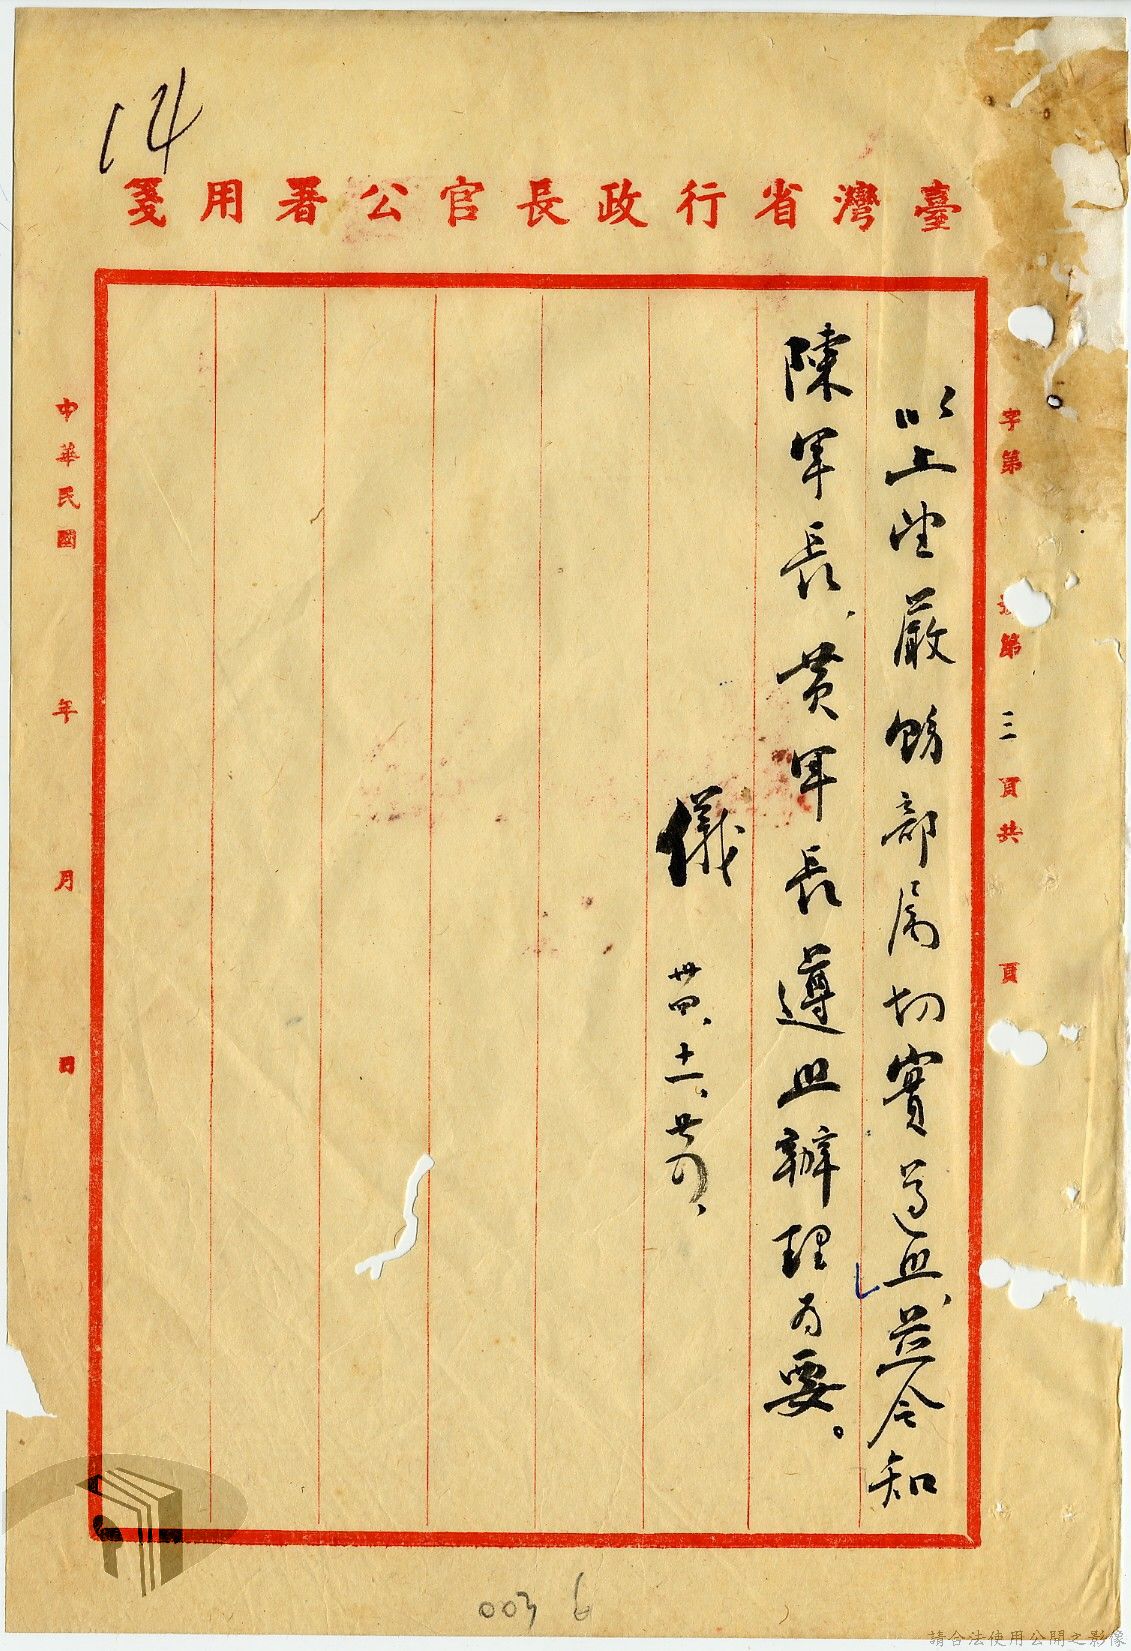 14
臺灣省行政長官公署用箋
字第 第三頁共 頁
以上望嚴飭部属切實遵照、並令知
陳軍長、黃軍長遵照辦理為要。
儀 卅四、十一、
中華民國 年 月 日
003 6
請合法使用公開之影像